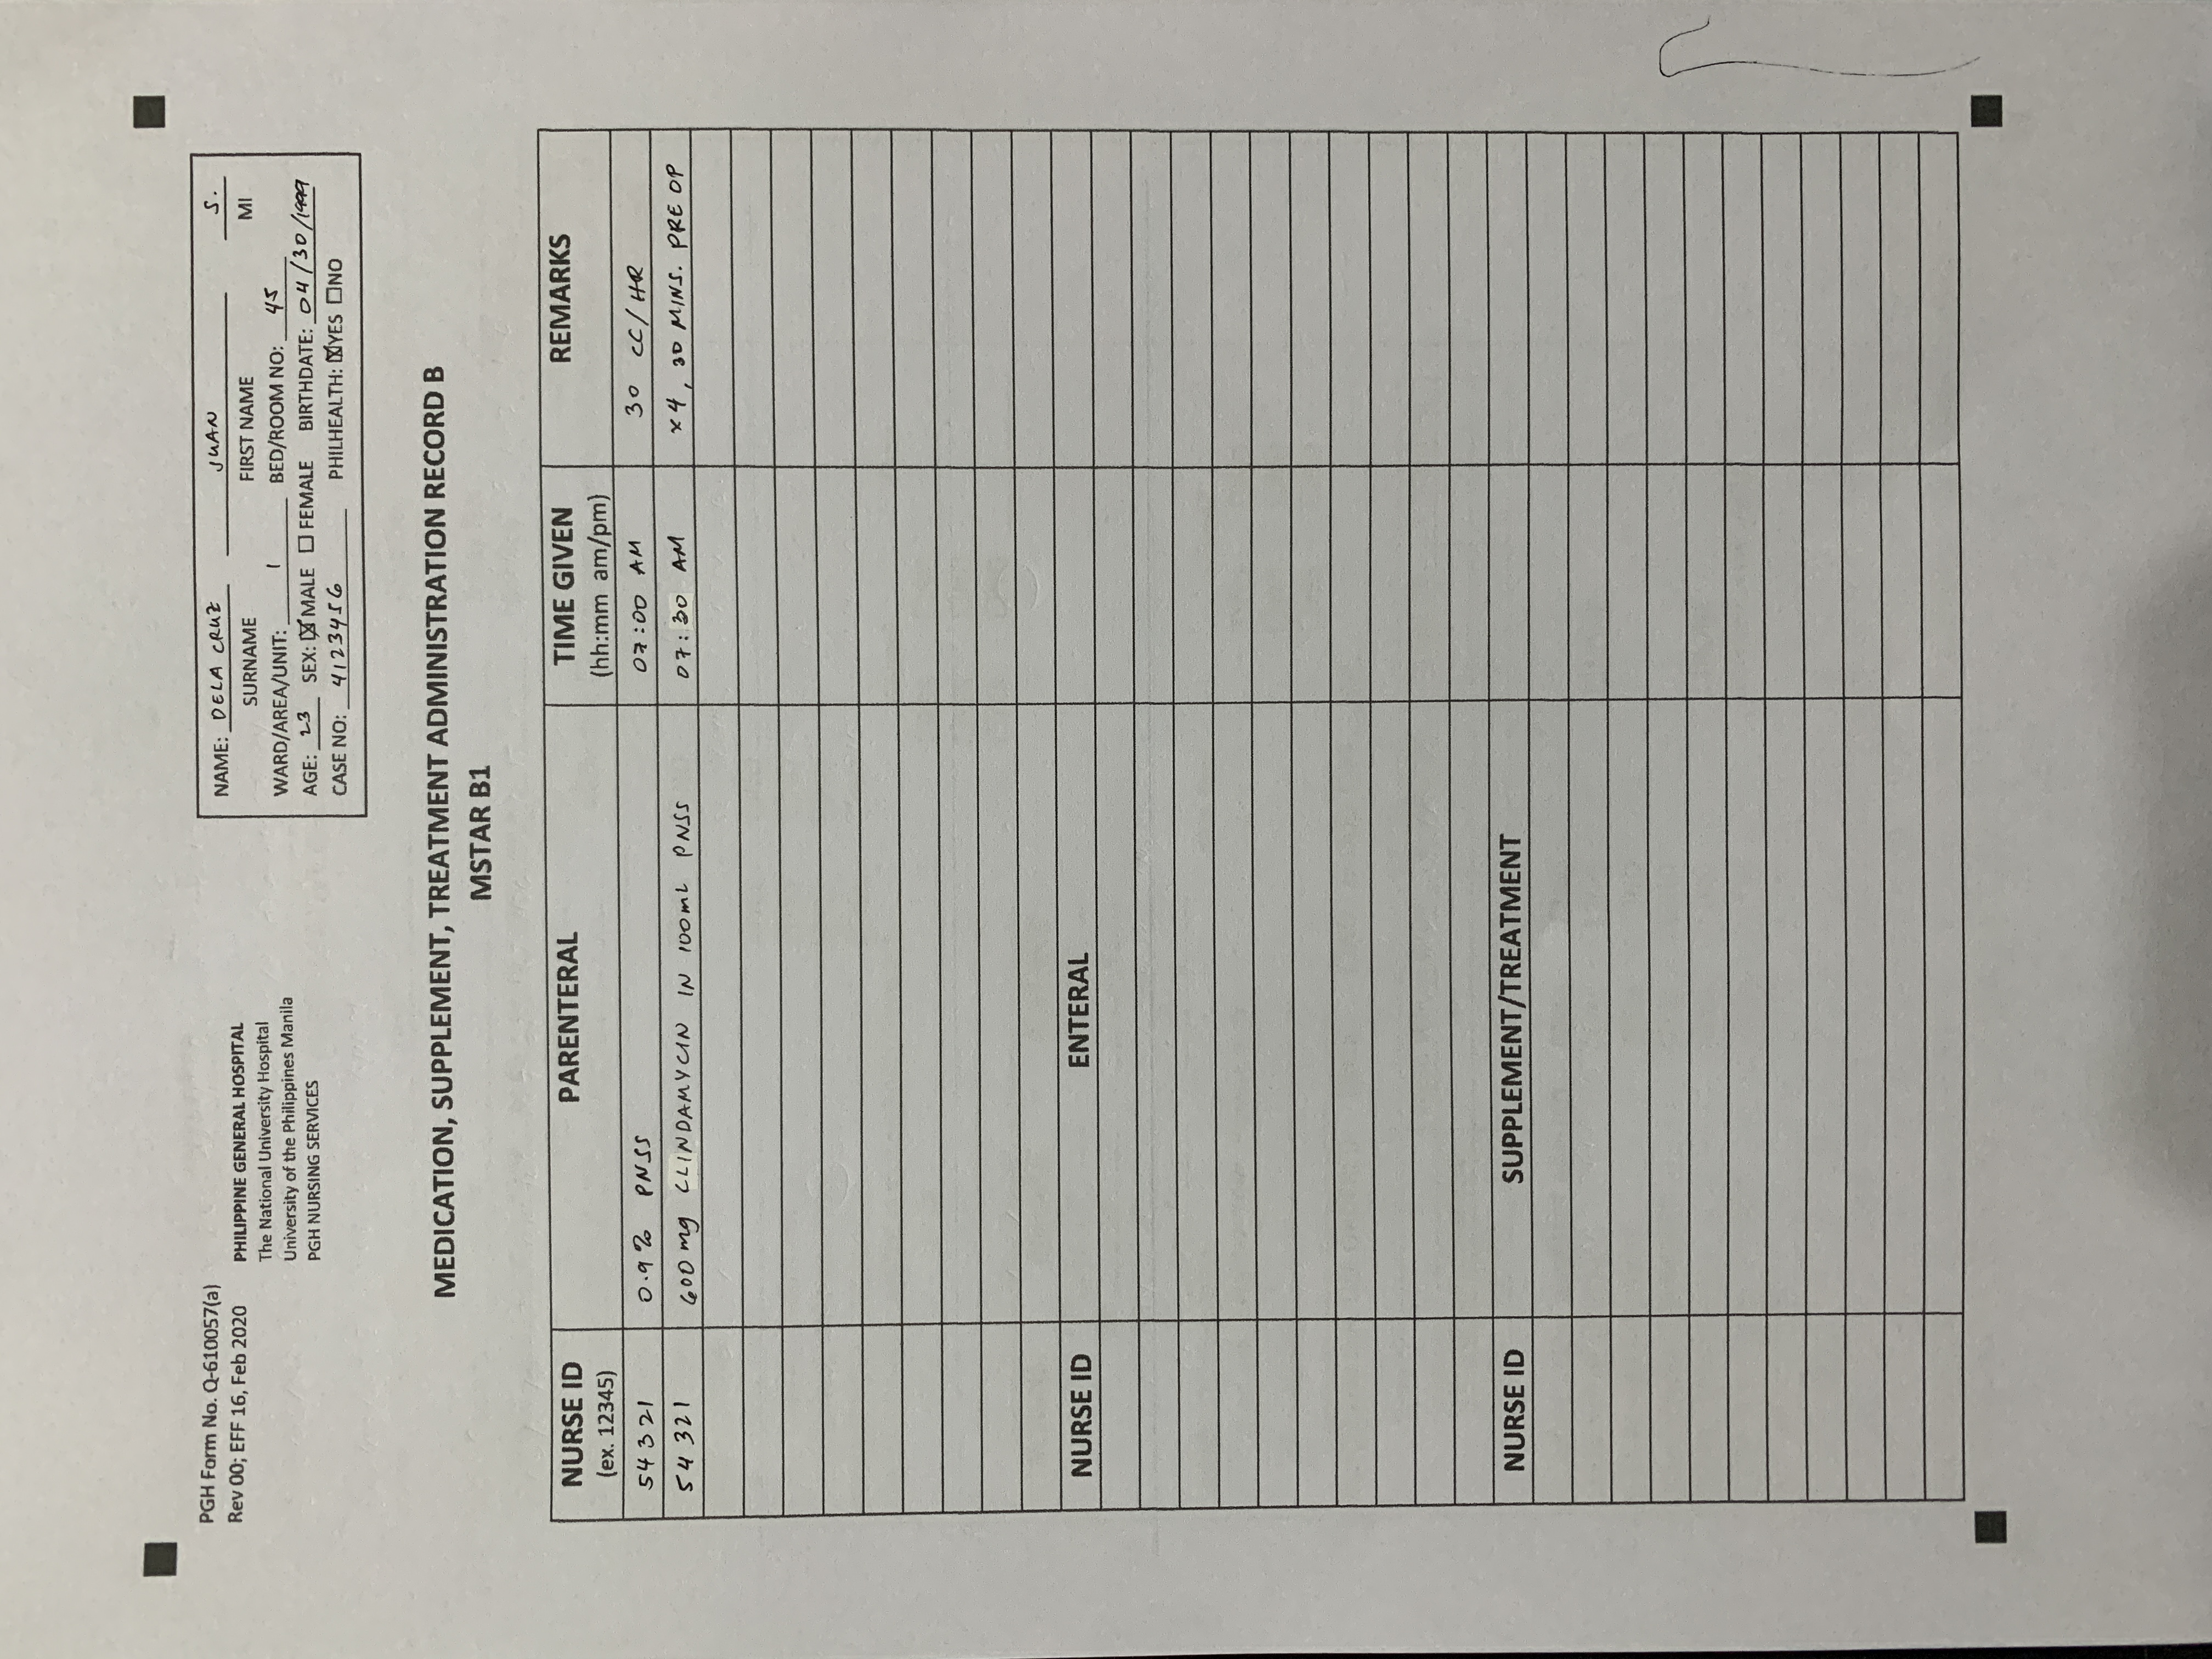 PGH Form No. Q-610057(a)
Rev 00; EFF 16, Feb 2020
PHILIPPINE GENERAL HOSPITAL
The National University Hospital
University of the Philippines Manila
PGH NURSING SERVICES
NAME: DELA CRUZ JUAN S.
SURNAME FIRST NAME MI
WARD/AREA/UNIT: 1 BED/ROOM NO: 45
AGE: 23 SEX: ☒ MALE ☐ FEMALE BIRTHDATE: 04/30/1999
CASE NO: 4123456 PHILHEALTH: ☒YES ☐NO
MEDICATION, SUPPLEMENT, TREATMENT ADMINISTRATION RECORD B
MSTAR B1
NURSE ID PARENTERAL TIME GIVEN REMARKS
(ex. 12345) (hh:mm am/pm)
54321 0.9% PNSS 07:00 AM 30 CC/HR
54321 600mg CLINDAMYCIN IN 100mL PNSS 07:30 AM x4, 30 MINS. PRE OP
NURSE ID ENTERAL
NURSE ID SUPPLEMENT/TREATMENT